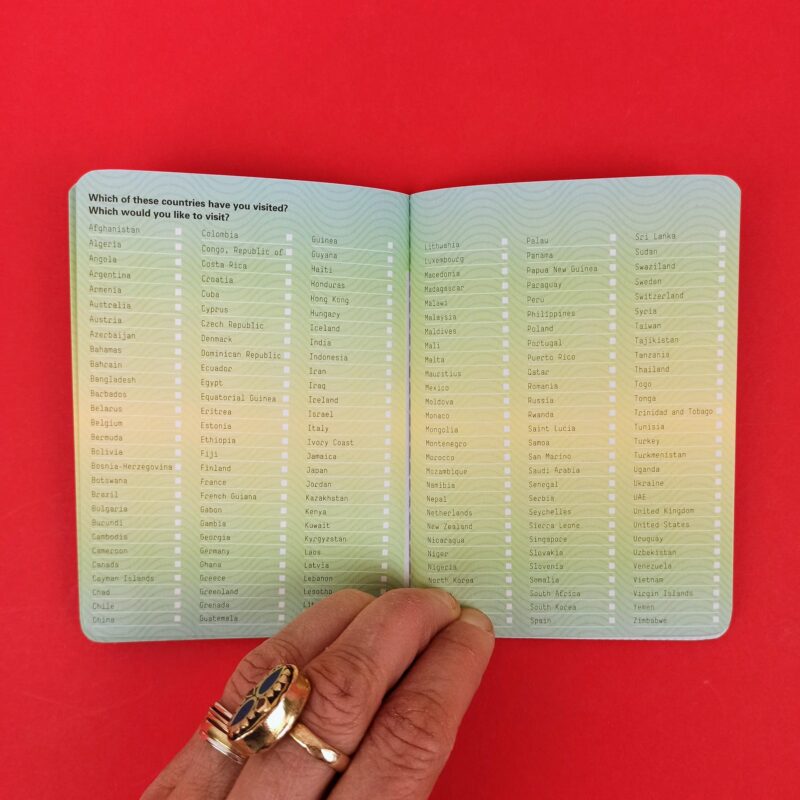 Which of these countries have you visited?
Which would you like to visit?
Afghanistan
Algeria
Angola
Argentina
Armenia
Australia
Austria
Azerbaijan
Bahamas
Bahrain
Bangladesh
Barbados
Belarus
Belgium
Bermuda
Bolivia
Bosnia-Herzegovina
Botswana
Brazil
Bulgaria
Burundi
Cambodia
Cameroon
Canada
Cayman Islands
Chad
Chile
China
Colombia
Congo, Republic of
Costa Rica
Croatia
Cuba
Cyprus
Czech Republic
Denmark
Dominican Republic
Ecuador
Egypt
Equatorial Guinea
Eritrea
Estonia
Ethiopia
Fiji
Finland
France
French Guiana
Gabon
Gambia
Georgia
Germany
Ghana
Greece
Greenland
Grenada
Guatemala
Guinea
Guyana
Haiti
Honduras
Hong Kong
Hungary
Iceland
India
Indonesia
Iran
Iraq
Ireland
Israel
Italy
Ivory Coast
Jamaica
Japan
Jordan
Kazakhstan
Kenya
Kuwait
Kyrgyzstan
Laos
Latvia
Lebanon
Lesotho
Lithuania
Luxembourg
Macedonia
Madagascar
Malawi
Malaysia
Maldives
Mali
Malta
Mauritius
Mexico
Moldova
Monaco
Mongolia
Montenegro
Morocco
Mozambique
Namibia
Nepal
Netherlands
New Zealand
Nicaragua
Niger
Nigeria
North Korea
Palau
Panama
Papua New Guinea
Paraguay
Peru
Philippines
Poland
Portugal
Puerto Rico
Qatar
Romania
Russia
Rwanda
Saint Lucia
Samoa
San Marino
Saudi Arabia
Senegal
Serbia
Seychelles
Sierra Leone
Singapore
Slovakia
Slovenia
Somalia
South Africa
South Korea
Spain
Sri Lanka
Sudan
Swaziland
Sweden
Switzerland
Syria
Taiwan
Tajikistan
Tanzania
Thailand
Togo
Tonga
Trinidad and Tobago
Tunisia
Turkey
Turkmenistan
Uganda
Ukraine
UAE
United Kingdom
United States
Uruguay
Uzbekistan
Venezuela
Vietnam
Virgin Islands
Yemen
Zimbabwe